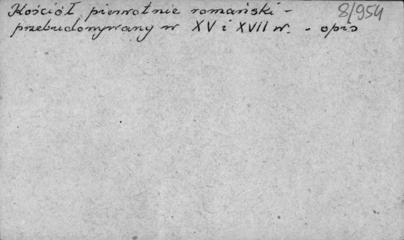 Kościół pierwotnie romański -
przebudowywany w XV i XVII w. - opis
8/954